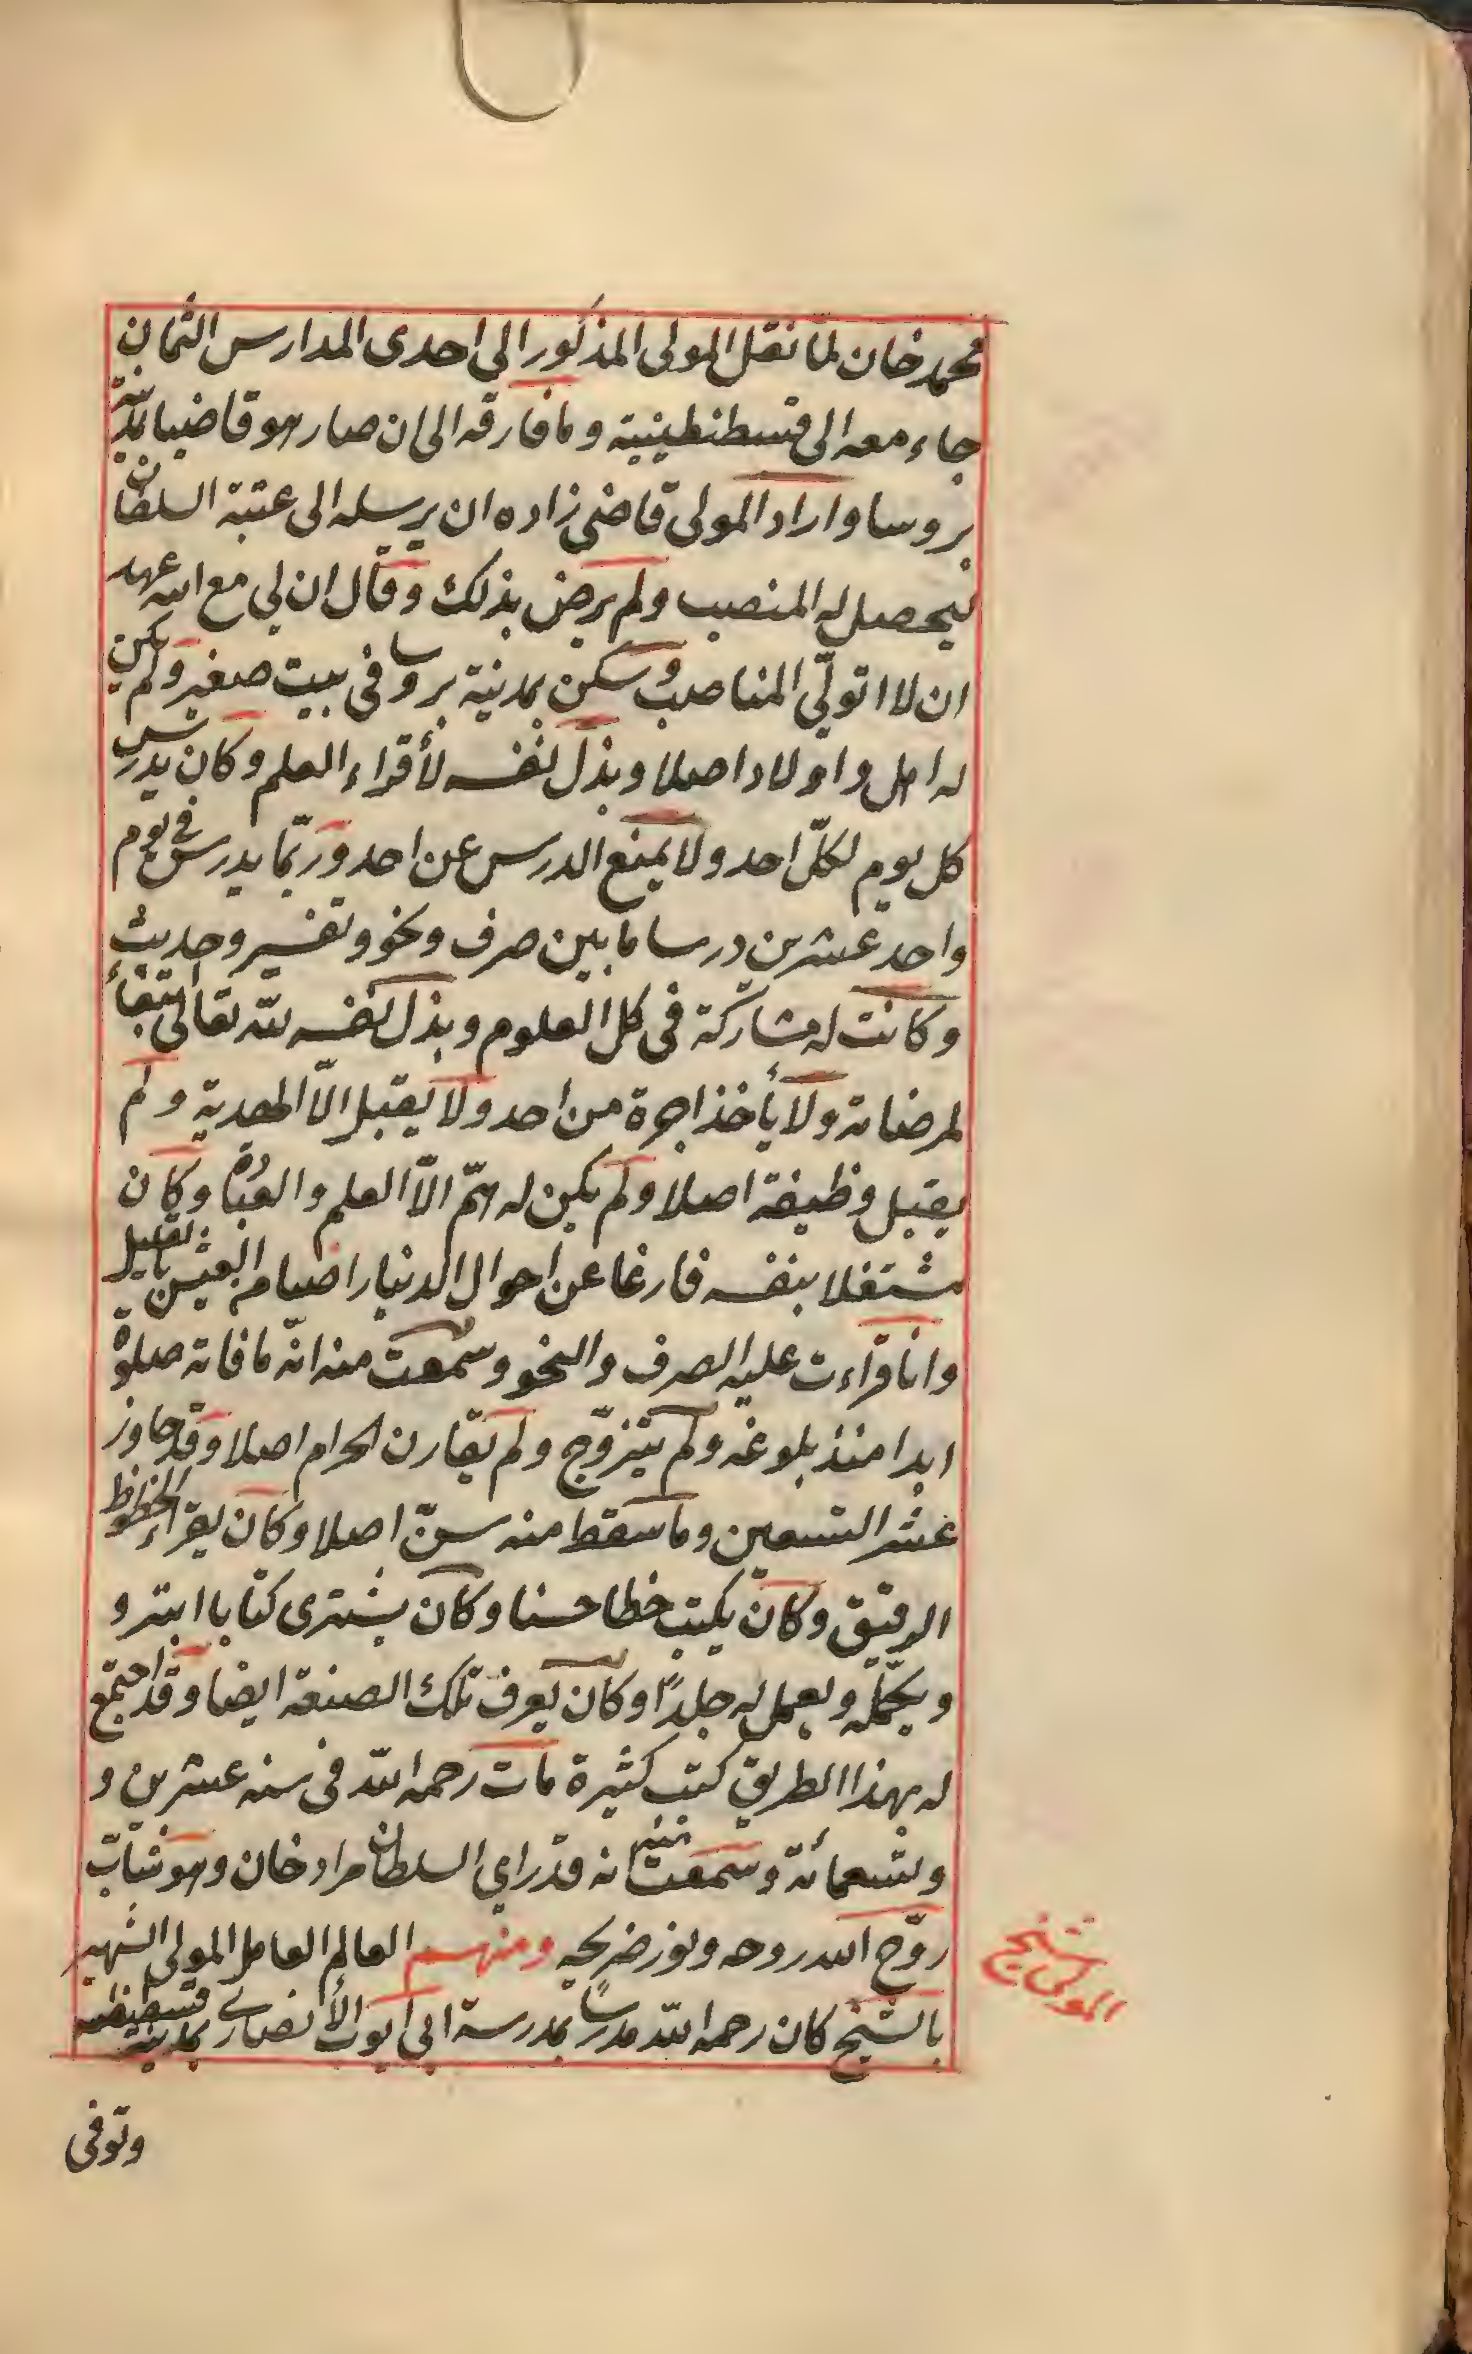 محمد خان لما نقل المولى المذكور الى احدى المدارس الثمان
جاء معه الى قسطنطينية وما فارقه الى ان صار هو قاضيا بمدينة
بروسا واراد المولى قاضى زاده ان يرسله الى عتبة السلطان
ليحصل له المنصب ولم يرض بذلك وقال ان لي مع الله عهد
ان لا اتولّي المناصب وسكن بمدينة بروسا في بيت صغير ولم يكن
له اهل واولاد اصلا وبذل نفسه لأقراء العلم وكان يدرس
كل يوم لكلّ احد ولا يمنع الدرس عن احد وربّما يدرس في يوم
واحد عشرين درسا ما بين صرف ونحو وتفسير وحديث
وكانت له مشاركة في كل العلوم وبذل نفسه لله تعالى ابتغاء
لمرضاته ولا يأخذ اجرة من احد ولا يقبل الّا الهدية ولم
يقبل وظيفة اصلا ولم يكن له همّ الّا العلم والعبادة وكان
مشتغلا بنفسه فارغا عن احوال الدنيا راضيا من العيش بالقليل
وانا قراءت عليه الصرف والنحو وسمعت منه انّه ما فاته صلوة
ابدا منذ بلوغه ولم يتزوّج ولم يقارن الحرام اصلا وقد جاوز
عشر التسعين وما سقط منه سنّ اصلا وكان يقراء الخطوط
الرقيق وكان يكتب خطا حسنا وكان يشترى كتابا ابتر و
ويكمّله ويعمل له جلدًا وكان يعرف تلك الصنعة ايضا وقد اجتمع
له بهذا الطريق كتب كثيرة مات رحمه الله في سنه عشرين و
وتسعمائة وسمعت منه انه قد راي السلطان مراد خان وهو شابّ
روّح الله روحه ونور ضريحه ومنهم العالم العامل المولى الشهير
بالشيخ كان رحمه الله مدرسًا بمدرسة ابي ايوب الأنصاري بمدينة قسطنطنيه
المولى شيخ
وتوفى